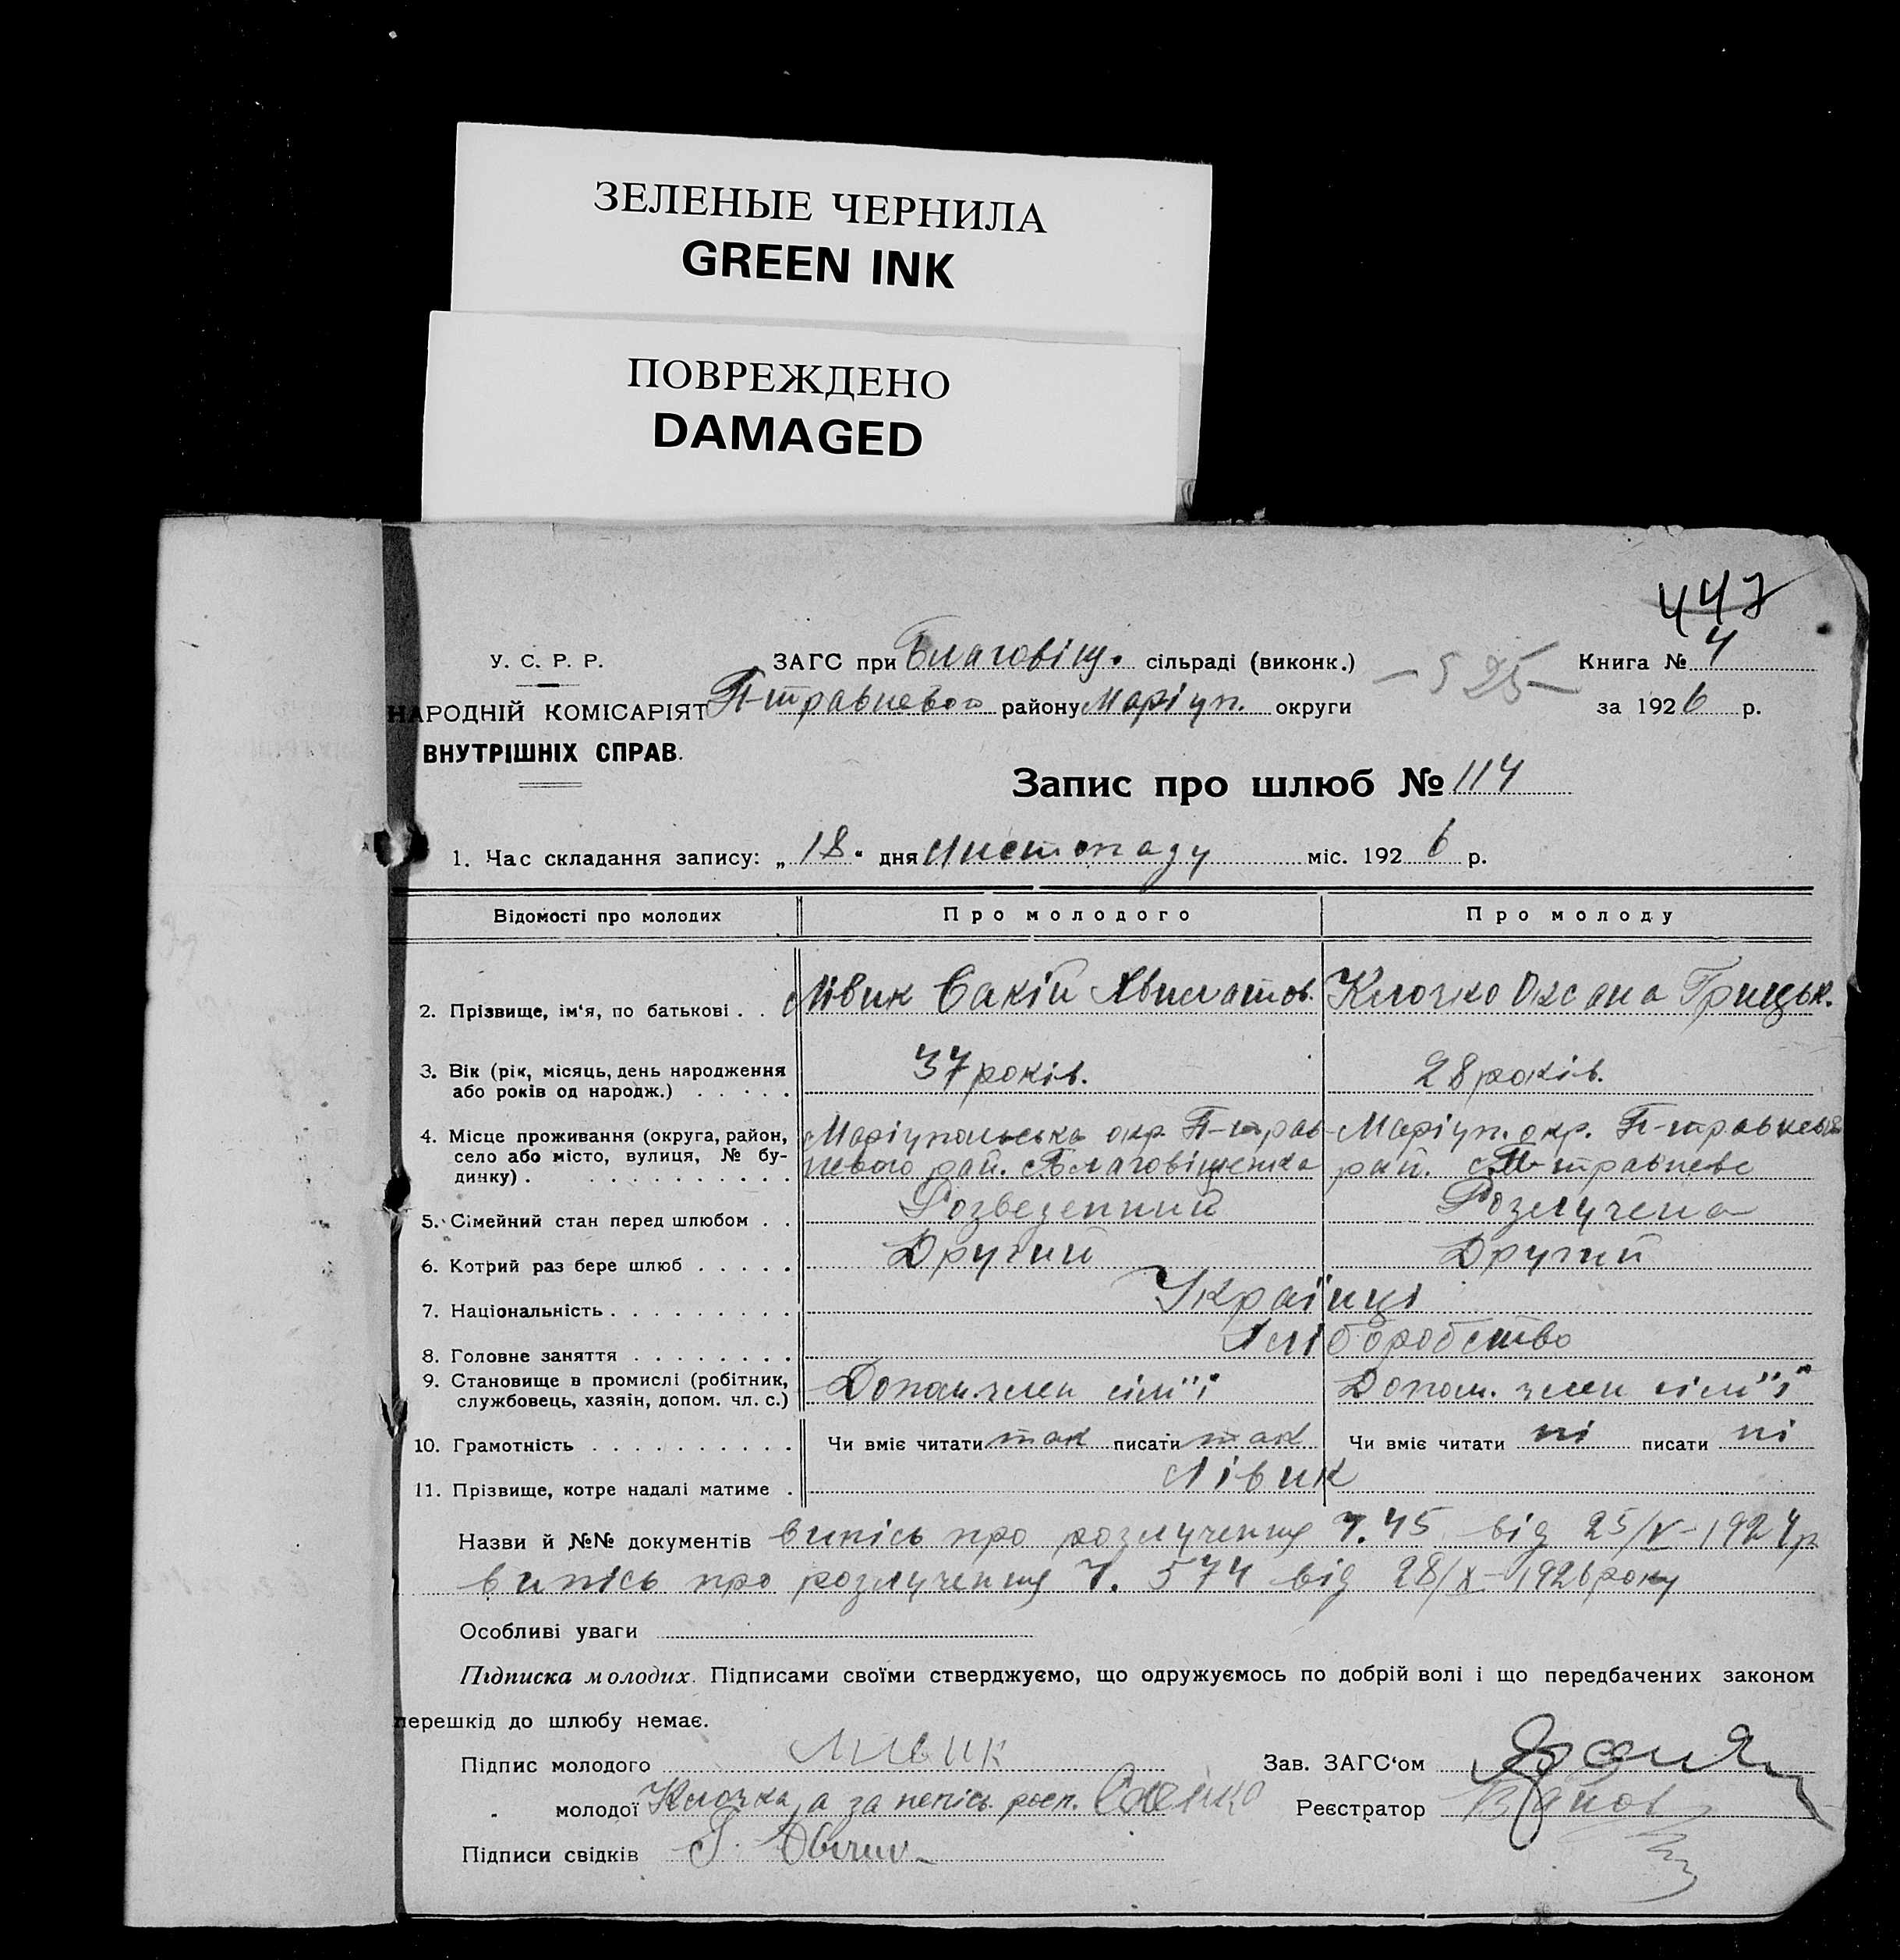 ЗЕЛЕНЫЕ ЧЕРНИЛА
GREEN INK
ПОВРЕЖДЕНО
DAMAGED
447
У. С. Р. Р.
НАРОДНІЙ КОМІСАРІЯТ
ВНУТРІШНІХ СПРАВ.
ЗАГС при Благовіщ. сільраді (виконк.)
П-травневого району Маріуп. округи
- 525 -
Книга № 4
за 1926 р.
Запис про шлюб № 114
1. Час складання запису: „18" дня Листопаду міс. 1926 р.
Відомості про молодих Про молодого Про молоду
2. Прізвище, ім'я, по батькові . . Лівик Сакій Клочко Оксана Грицьк.
3. Вік (рік, місяць, день народження або років од народж.) . . . . . 37 років. 28 років.
4. Місце проживання (округа, район, село або місто, вулиця, № будинку) . . . . . . . . . . . Маріупольська окр. П-травневого рай. с. Благовіщенка Маріуп. окр. П-травневого рай. с. П-травневе
5. Сімейний стан перед шлюбом . . Розведенний Розлучена
6. Котрий раз бере шлюб . . . . . Другий Другий
7. Національність . . . . . . . . . Українці
8. Головне заняття . . . . . . . . Хліборобство
9. Становище в промислі (робітник, службовець, хазяін, допом. чл. с.) Допом. член сім"ї Допом. член сім"ї
10. Грамотність . . . . . . . . . . Чи вміє читати так писати так Чи вміє читати ні писати ні
11. Прізвище, котре надалі матиме . Лівик
Назви й №№ документів випісь про розлучення Ч. 45 від 25/V-1924 р
випісь про розлучення Ч. 574 від 28/X-1926 року
Особливі уваги
Підписка молодих. Підписами своїми стверджуємо, що одружуємось по добрій волі і що передбачених законом
перешкід до шлюбу немає.
Підпис молодого Ливик Зав. ЗАГС'ом
молодої Клочка, а за непісь. росп. Реєстратор
Підписи свідків